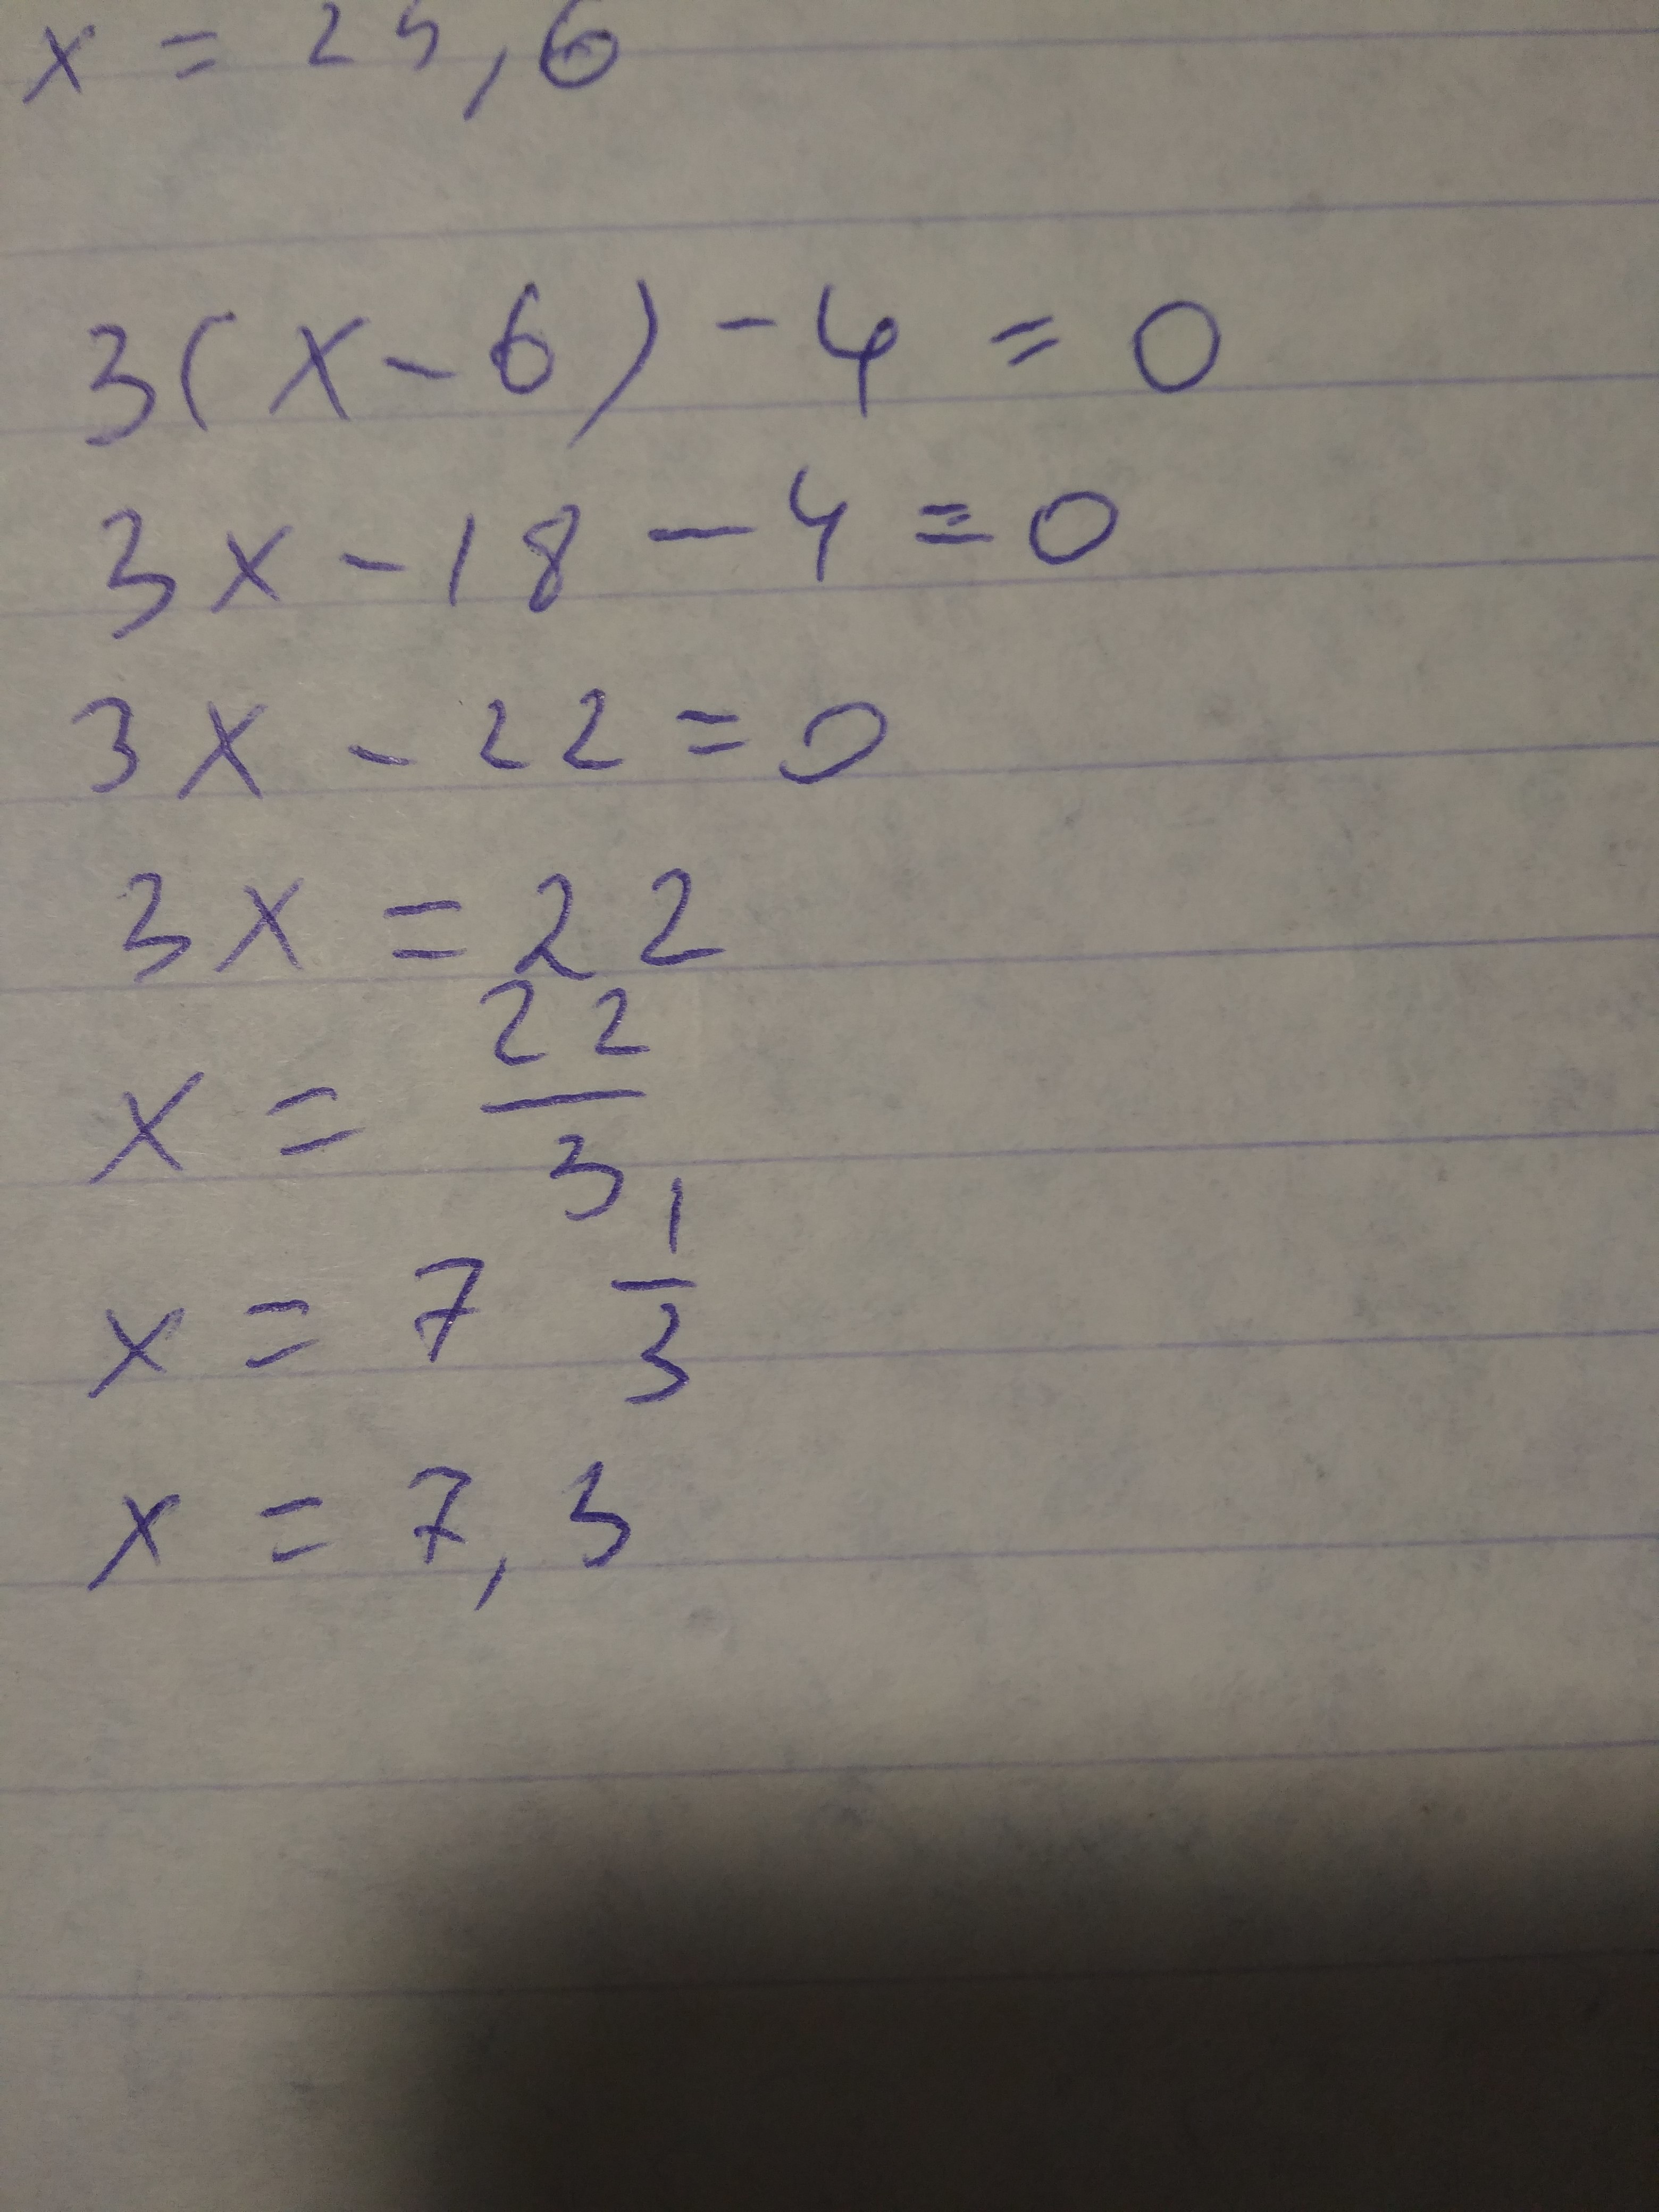 x = 25,6
3(x-6)-4=0
3x-18-4=0
3x-22=0
3x=22
x = 22/3
x = 7 1/3
x = 7,3